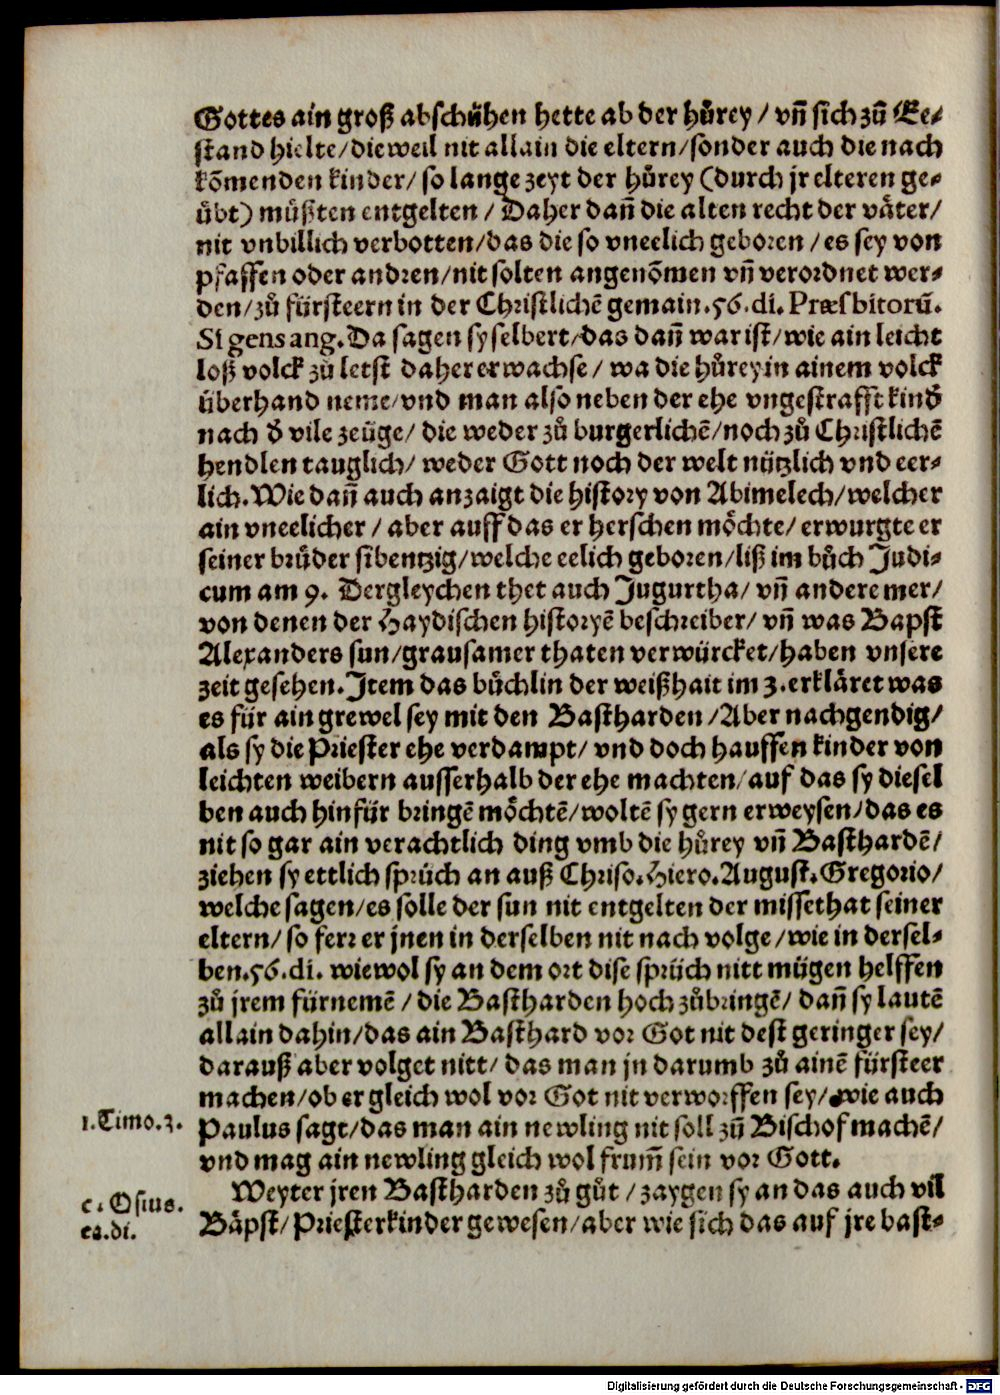 Gottes ain groß abschühen hette ab der hůrey / vñ sich zů Ee⸗
stand hielte/dieweil nit allain die eltern/sonder auch die nach
kõmenden kinder/ so lange zeyt der hůrey (durch jr elteren ge⸗
übt) müßten entgelten / Daher dañ die alten recht der våter/
nit vnbillich verbotten/das die so vneelich geboren /es sey von
pfaffen oder andren/nit solten angenõmen vñ verordnet wer⸗
den/zů fürsteern in der Christlichẽ gemain.56.di. Præsbitorũ.
Si gens ang. Da sagen sy selbert/das dañ war ist/wie ain leicht
loß volck zů letst daher erwachse / wa die hůrey in ainem volck
überhand neme/vnd man also neben der ehe vngestrafft kind
nach ð vile zeüge/ die weder zů burgerlichẽ/noch zů Christlichẽ
hendlen tauglich/ weder Gott noch der welt nützlich vnd eer⸗
lich. Wie dañ auch anzaigt die history von Abimelech/welcher
ain vneelicher / aber auff das er herschen möchte/ erwurgte er
seiner brůder sibentzig/welche eelich geboren/liß im bůch Judi⸗
cum am 9. Dergleychen thet auch Jugurtha/ vñ andere mer/
von denen der Haydischen historyẽ beschreiber/ vñ was Bapst
Alexanders sun/grausamer thaten verwürcket/haben vnsere
zeit gesehen. Item das büchlin der weißhait im 3. erkläret was
es für ain grewel sey mit den Bastharden /Aber nachgendig/
als sy die Priester ehe verdampt/ vnd doch hauffen kinder von
leichten weibern ausserhalb der ehe machten/auf das sy diesel
ben auch hinfür bringẽ möchtẽ/woltẽ sy gern erweysen/das es
nit so gar ain verachtlich ding vmb die hůrey vñ Basthardẽ/
ziehen sy ettlich sprüch an auß Chriso. Hiero. August. Gregorio/
welche sagen/es solle der sun nit entgelten der missethat seiner
eltern/ so ferr er jnen in derselben nit nach volge /wie in dersel⸗
ben.56.di. wiewol sy an dem ort dise sprüch nitt mügen helffen
zů jrem fürnemẽ / die Bastharden hoch zůbringẽ/ dañ sy lautẽ
allain dahin/das ain Basthard vor Got nit dest geringer sey/
darauß aber volget nitt/ das man jn darumb zů ainẽ fürsteer
machen/ob er gleich wol vor Got nit verworffen sey/wie auch
1. Timo. 3.
Paulus sagt/das man ain newling nit soll zů Bischof machẽ/
vnd mag ain newling gleich wol frum̃ sein vor Gott.
Weyter jren Bastharden zů gůt / zaygen sy an das auch vil
c. Osius.
Bäpst/Priesterkinder gewesen/aber wie sich das auf jre bast⸗
ea.di.
Digitalisierung gefördert durch die Deutsche Forschungsgemeinschaft - DFG